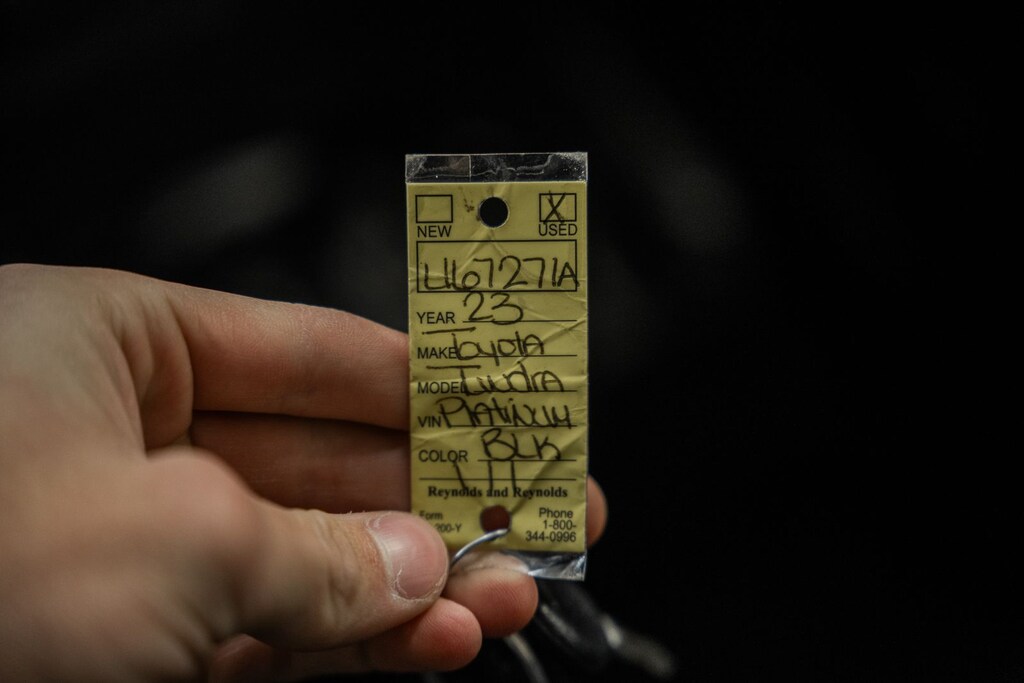 NEW USED
X
U167271A
YEAR 23
MAKE Toyota
MODEL Tundra
VIN Platinum
COLOR BLK
Reynolds and Reynolds
Form Phone
200-Y 1-800-
344-0996